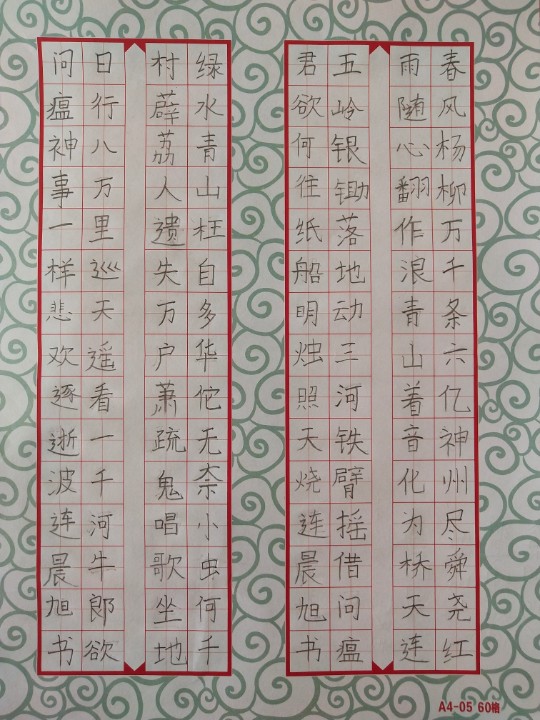 春风杨柳万千条六亿神州尽舜尧红
雨随心翻作浪青山着音化为桥天连
五岭银锄落地动三河铁臂摇借问瘟
君欲何往纸船明烛照天烧连晨旭书
绿水青山枉自多华佗无奈小虫何千
村薜荔人遗失万户萧疏鬼唱歌坐地
日行八万里巡天遥看一千河牛郎欲
问瘟神事一样悲欢逐逝波连晨旭书
A4-05 60格